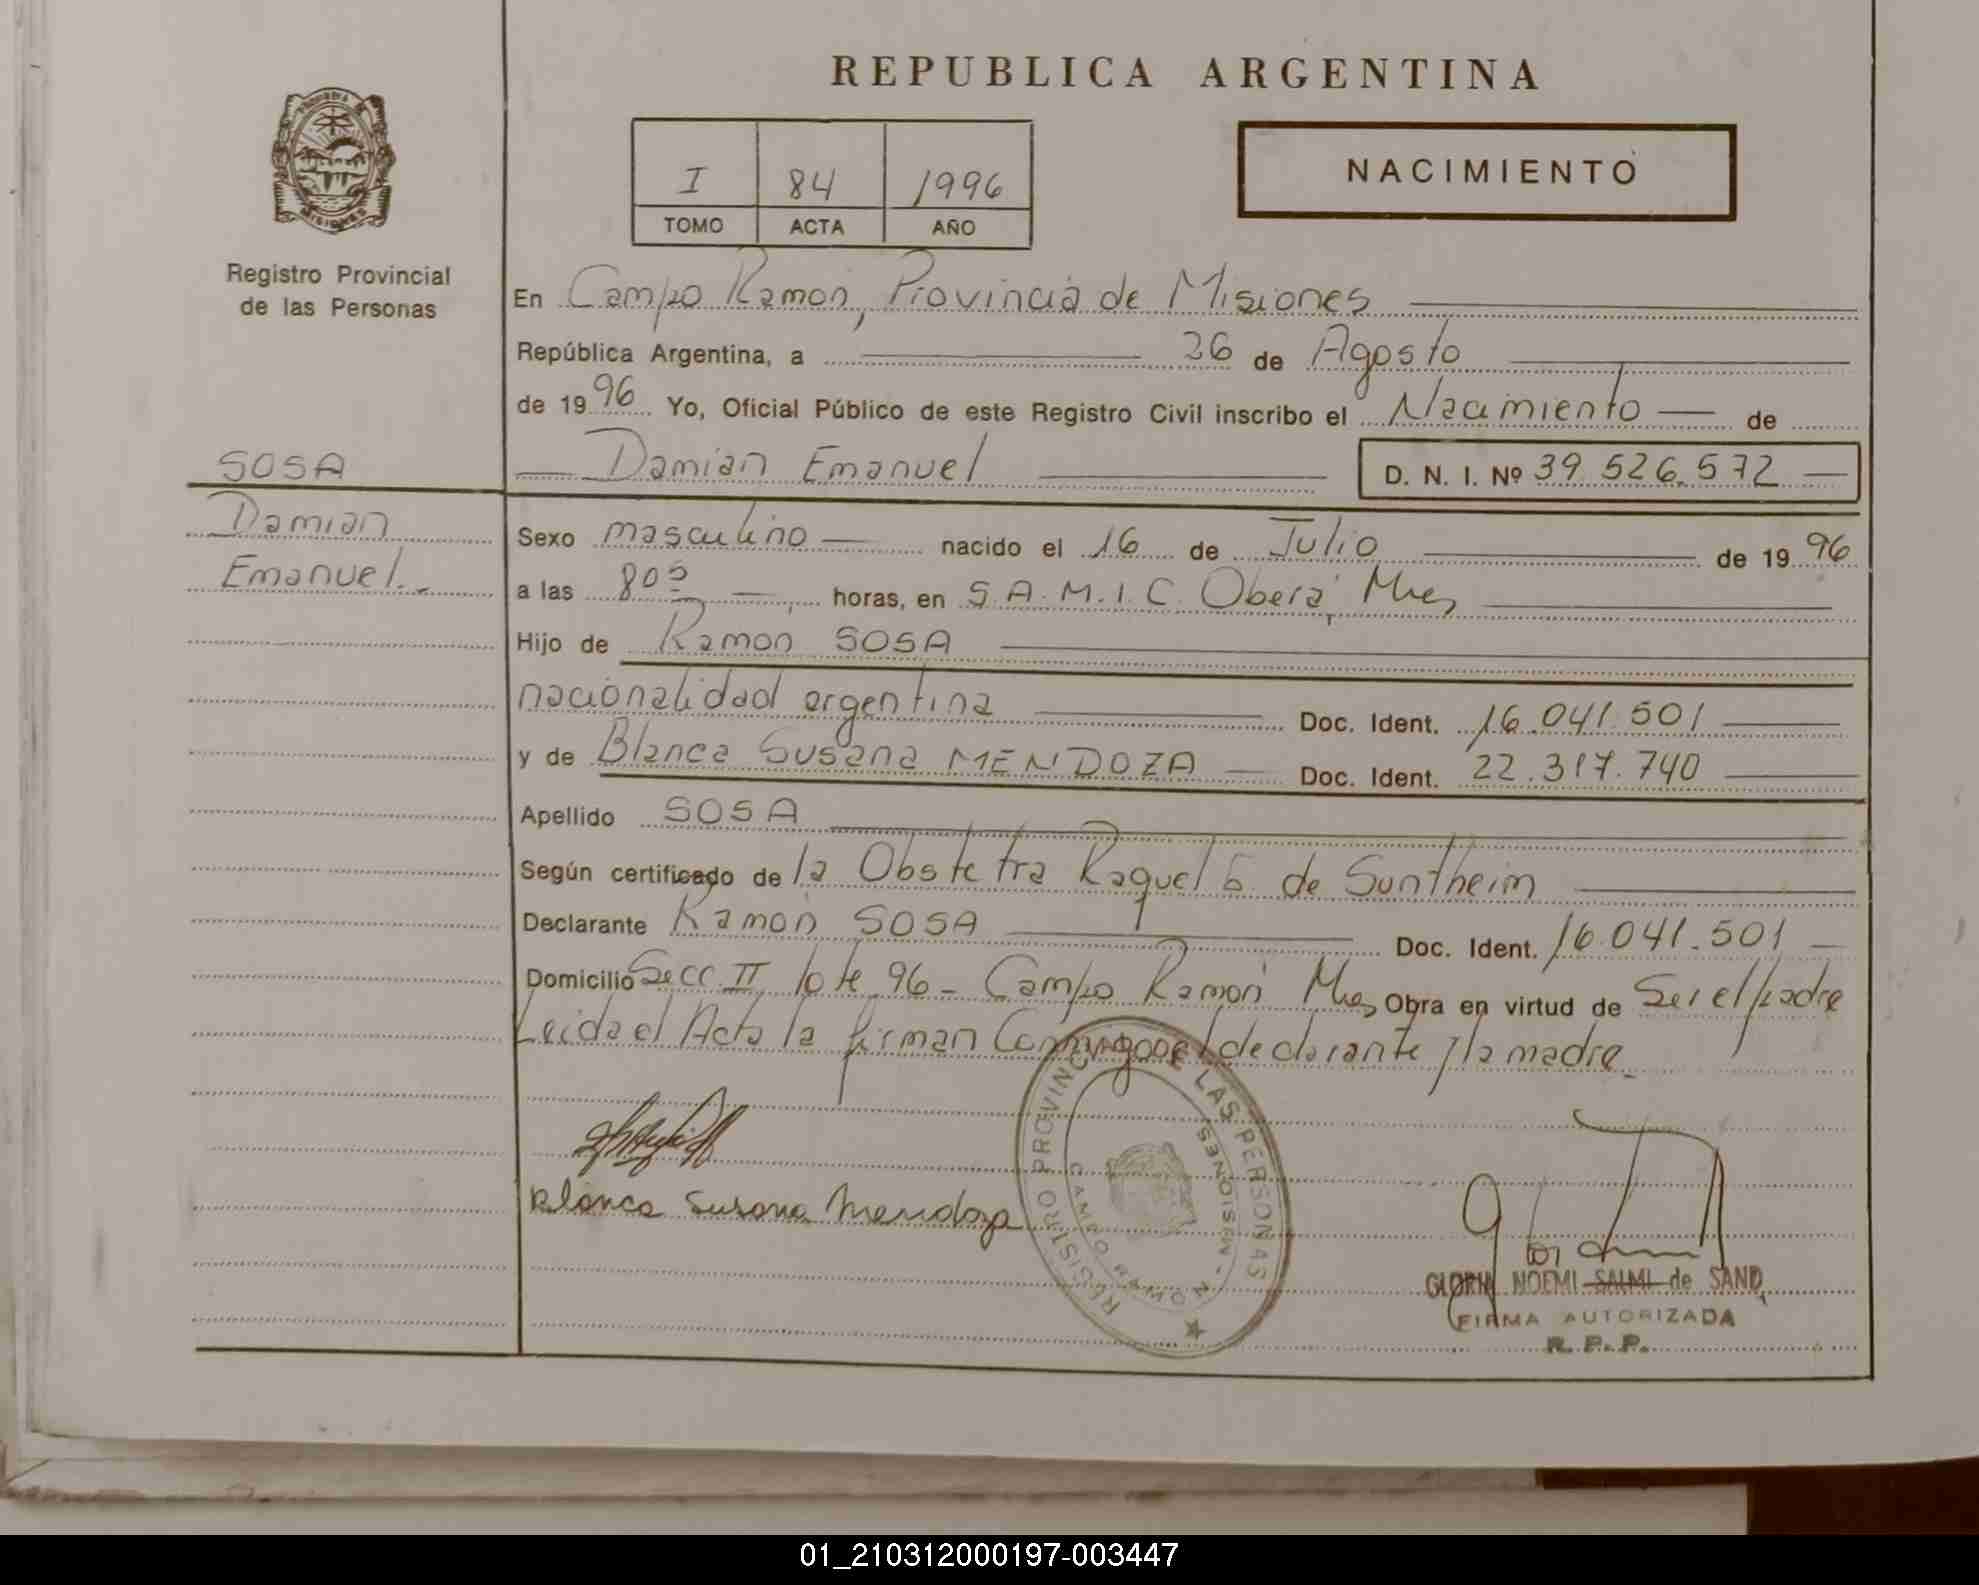 REPUBLICA ARGENTINA
NACIMIENTO
I 84 1996
TOMO ACTA AÑO
Registro Provincial
de las Personas
En Campo Ramón, Provincia de Misiones
República Argentina, a 26 de Agosto
de 1996 Yo, Oficial Público de este Registro Civil inscribo el Nacimiento de
Damián Emanuel D. N. I. Nº 39.526.572
SOSA
Damián
Emanuel.
Sexo masculino nacido el 16 de Julio de 1996
a las 805 horas, en S.A.M.I.C. Oberá, Mnes
Hijo de Ramón SOSA
nacionalidad argentina Doc. Ident. 16.041.501
y de Blanca Susana MENDOZA Doc. Ident. 22.317.740
Apellido SOSA
Según certificado de la Obstetra Raquel de Suntheim
Declarante Ramón SOSA Doc. Ident. 16.041.501
Domicilio Secc. II lote 96 - Campo Ramón Mnes Obra en virtud de Ser el padre
Leida el Acta la firman Conmigo el declarante y la madre.
Blanca Susana Mendoza
REGISTRO PROVINCIAL DE LAS PERSONAS
CAMPO RAMON - MISIONES
GLORIA NOEMI SALMI de SAND
FIRMA AUTORIZADA
R. P. P.
01_210312000197-003447